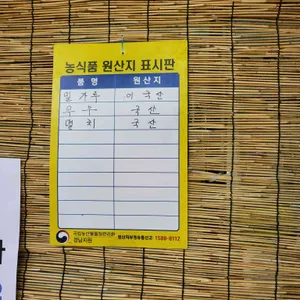 농식품 원산지 표시판
품 명 원 산 지
밀 가루 미 국 산
무 우 국 산
멸 치 국 산
국립농산물품질관리원
경남지원
원산지부정유통신고 1588-8112